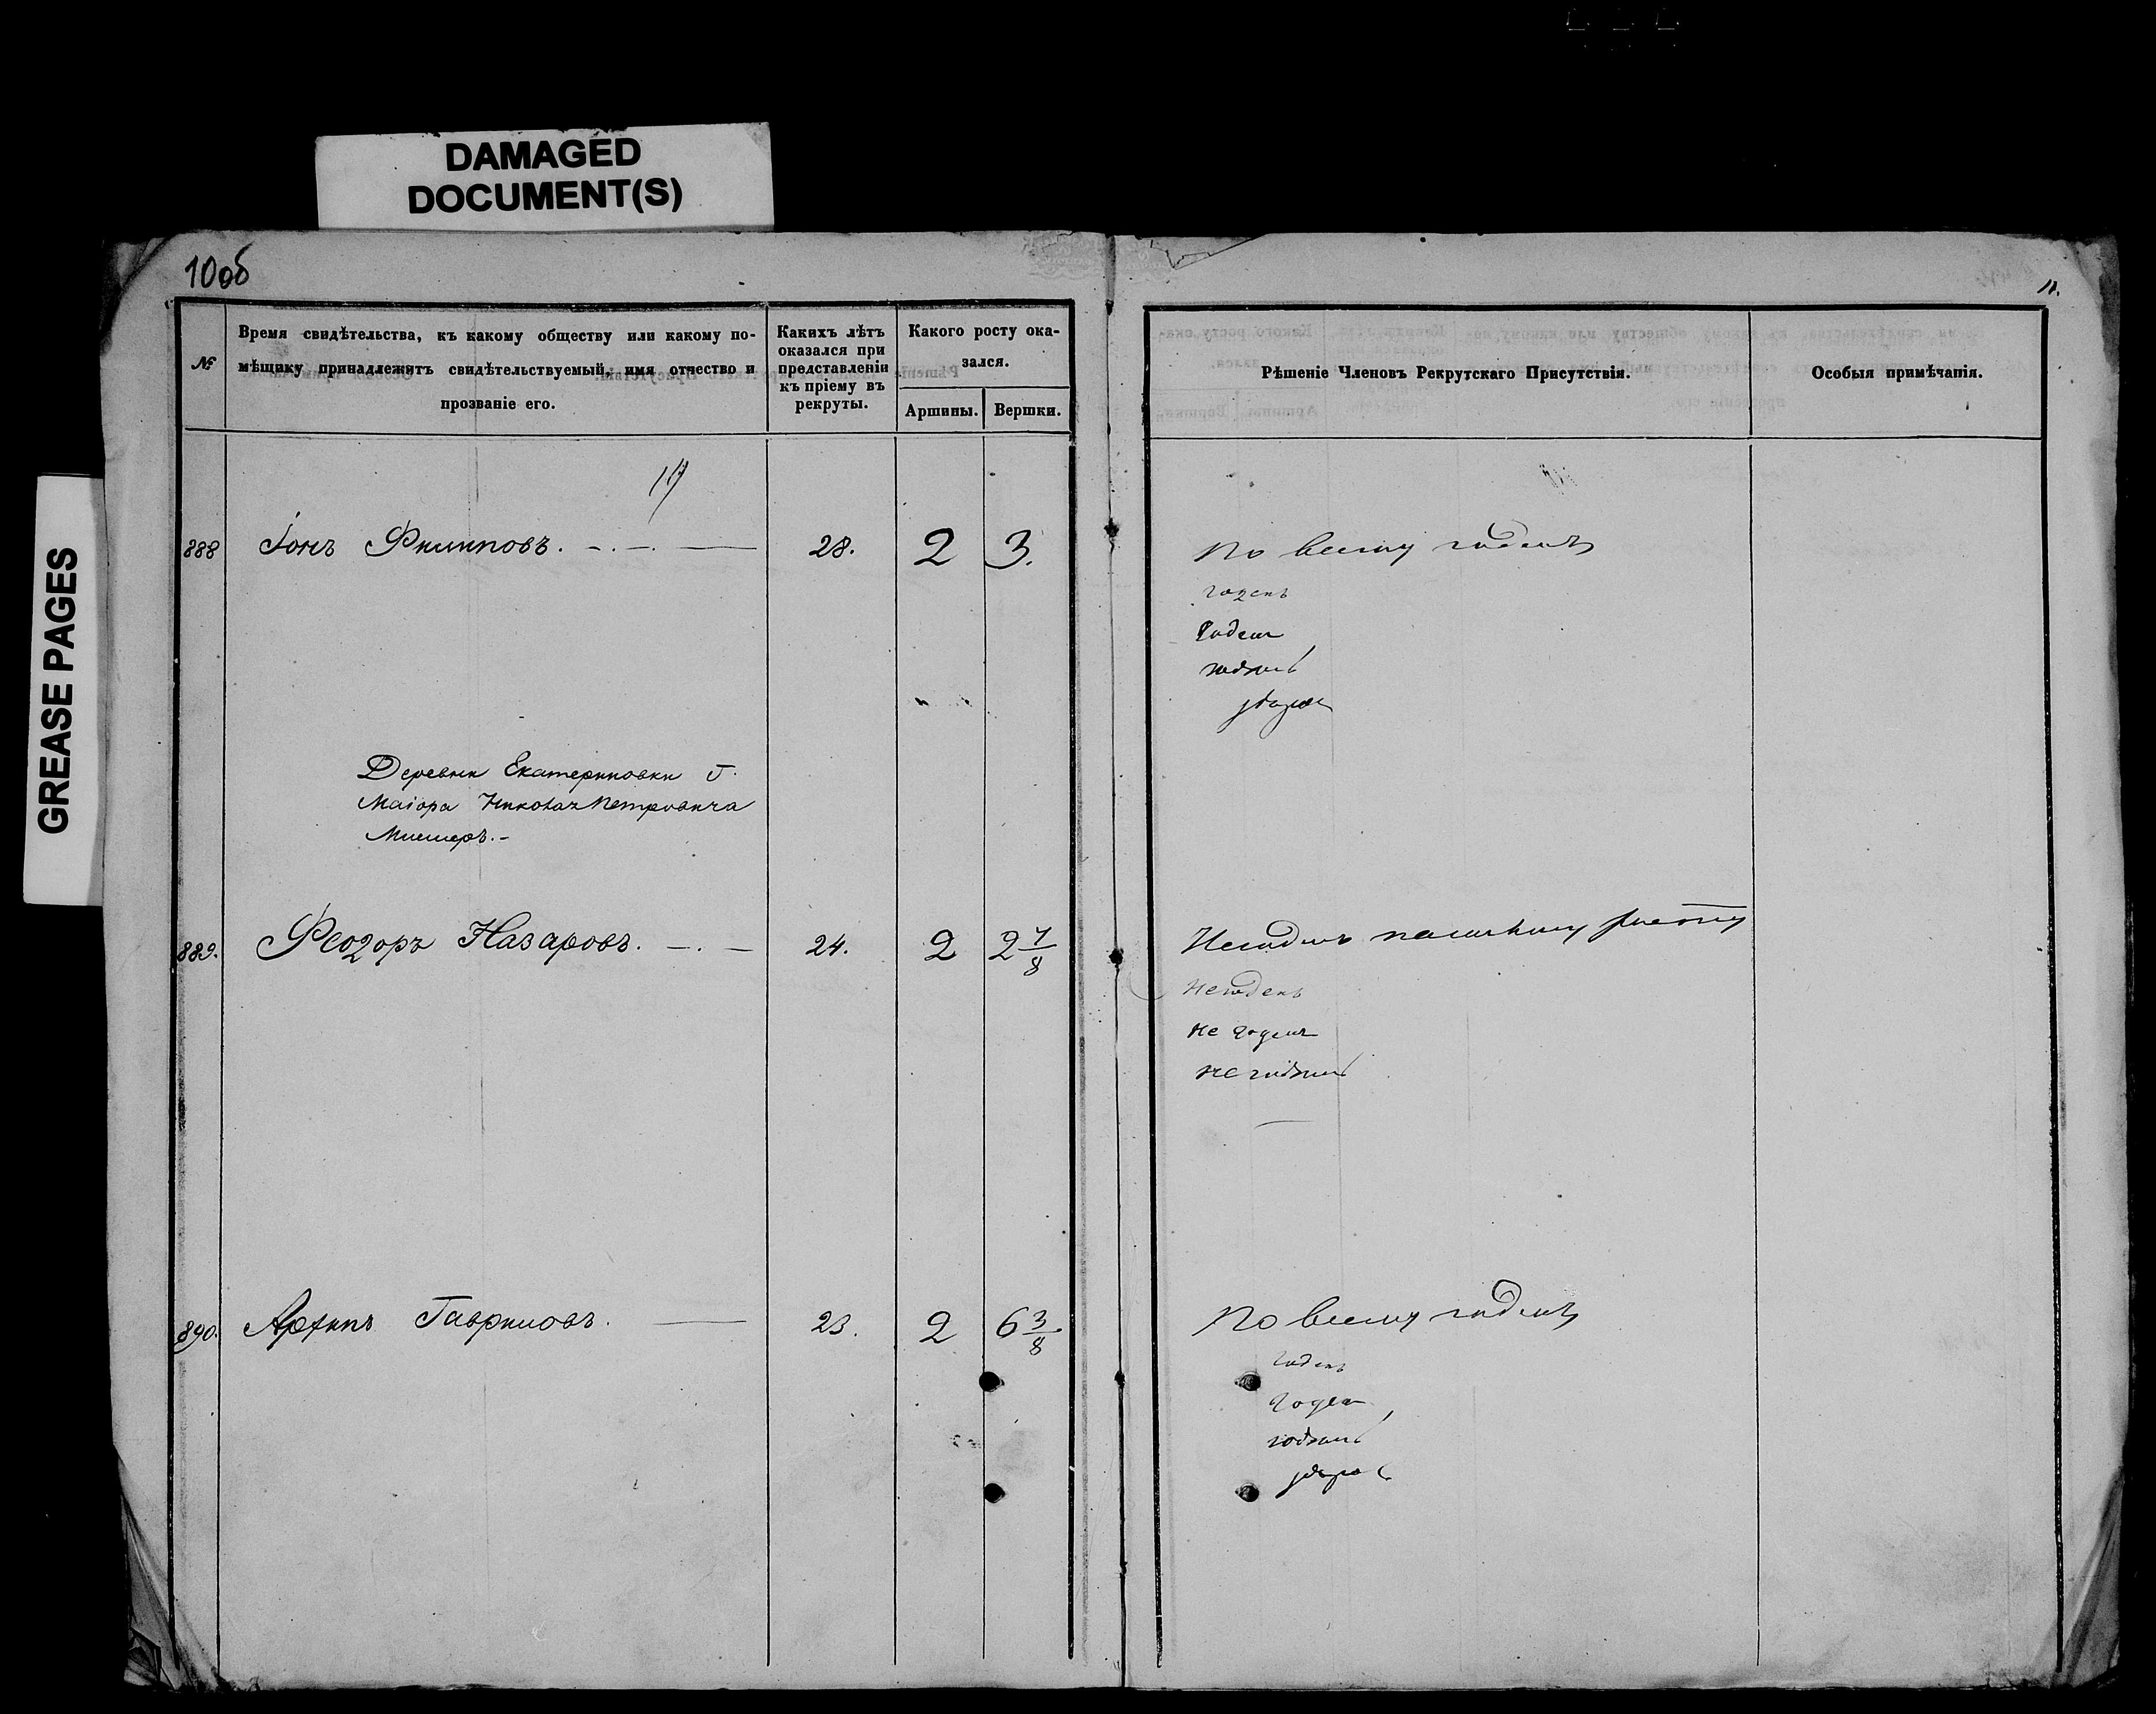 DAMAGED
DOCUMENT(S)
GREASE PAGES
10об
11.
№
Время свидѣтельства, къ какому обществу или какому по-
мѣщику принадлежитъ свидѣтельствуемый, имя отчество и
прозваніе его.
Какихъ лѣтъ
оказался при
представленіи
къ пріему въ
рекруты.
Какого росту ока-
зался.
Аршины. Вершки.
Рѣшеніе Членовъ Рекрутскаго Присутствія.
Особыя примѣчанія.
888 Іонъ Филиповъ. 28. 2 3.
По всему годенъ
годенъ
Годенъ
годенъ
Деревни Екатериновки Г.
Маіора Николая Петровича
889. Феодоръ Назаровъ. 24. 2 2 7/8
Негоденъ по малому росту
Негоденъ
не годенъ
не годенъ
890. Архипъ Гавриловъ. 23. 2 6 3/8
По всему годенъ
годенъ
годенъ
годенъ